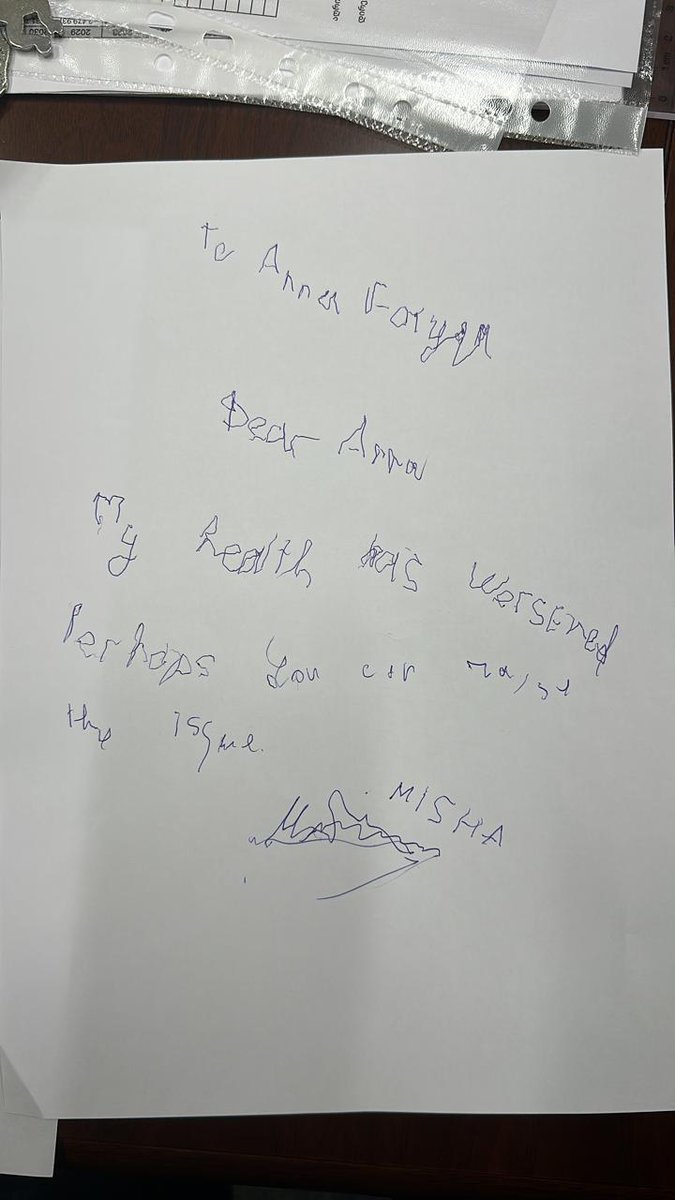 To Anna Foryga
Dear Anna
My health has worsened
Perhaps you can raise
the issue.
MISHA
2028 2029 2030